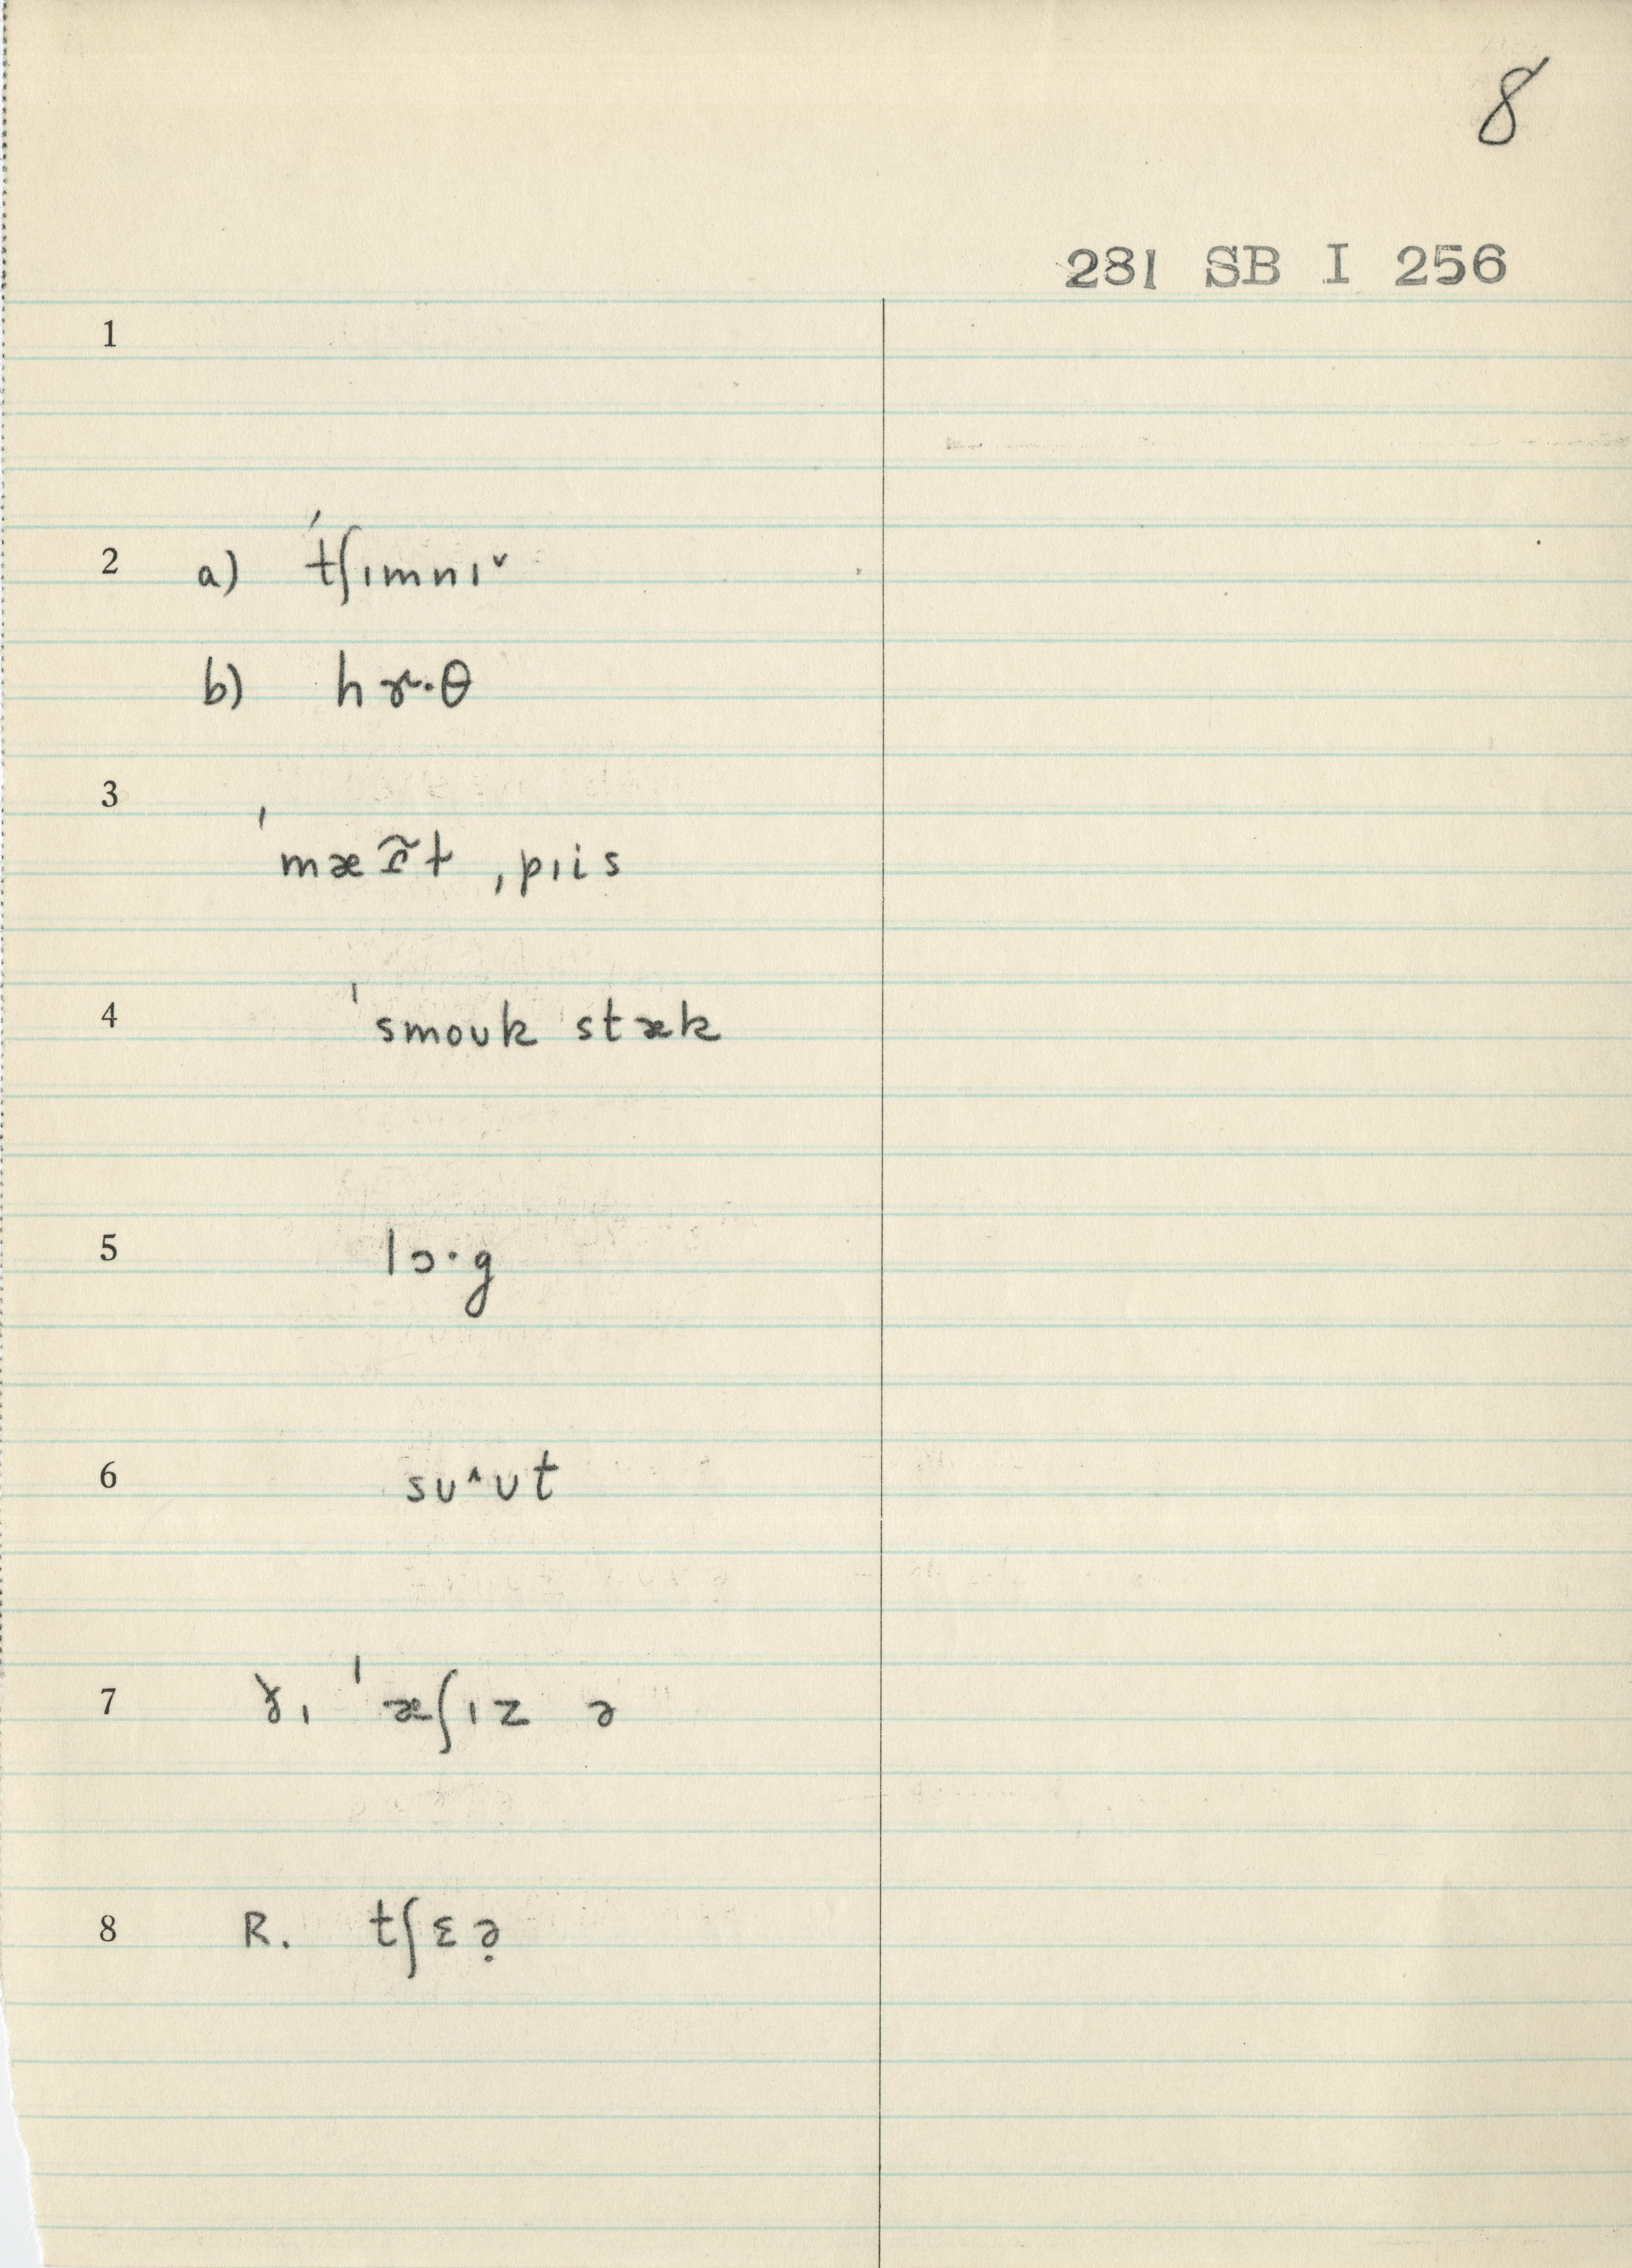 8
281 SB I 256
1
2 a) ˈtʃɪmnɪ˅
b) hɤ·θ
3
ˈmæ t ˌpɪis
4 ˈsmoʊk stæk
5 lɔ·g
6 sʊ^ʊt
7 ˈæʃɪz ə
8 R. tʃɛə̣